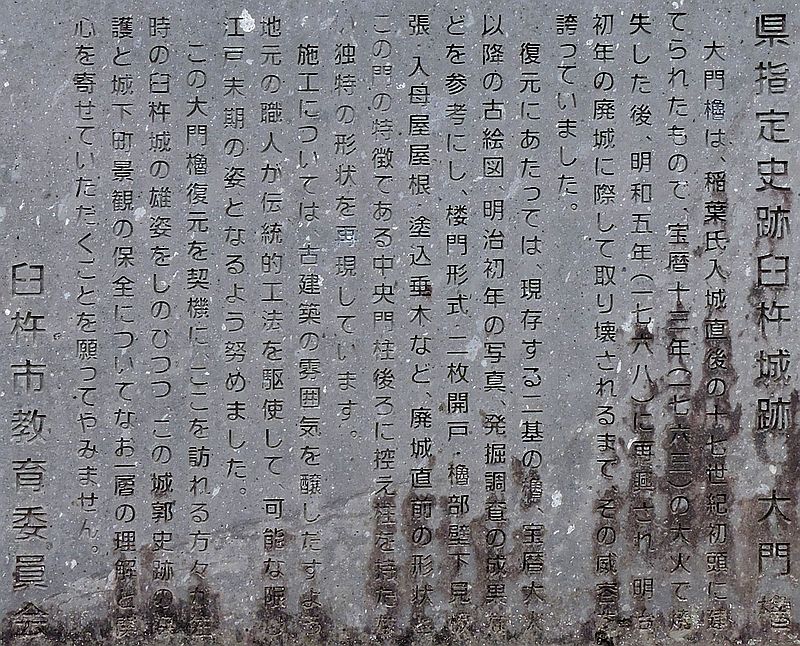 県指定史跡臼杵城跡 大門櫓
大門櫓は、稲葉氏入城直後の十七世紀初頭に建
てられたもので、宝暦十三年(一七六三)の大火で焼
失した後、明和五年(一七六八)に再興され、明治
初年の廃城に際して取り壊されるまで、その威容を
誇っていました。
復元にあたっては、現存する二基の櫓、宝暦大火
以降の古絵図、明治初年の写真、発掘調査の成果な
どを参考にし、楼門形式・二枚開戸・櫓部壁下見板
張・入母屋屋根・塗込垂木など、廃城直前の形状と
この門の特徴である中央門柱後ろに控え柱を持たな
い独特の形状を再現しています。
施工については、古建築の雰囲気を醸しだすよう
地元の職人が伝統的工法を駆使して、可能な限り
江戸末期の姿となるよう努めました。
この大門櫓復元を契機に、ここを訪れる方々が往
時の臼杵城の雄姿をしのびつつ、この城郭史跡の保
護と城下町景観の保全についてなお一層の理解と関
心を寄せていただくことを願ってやみません。
臼杵市教育委員会